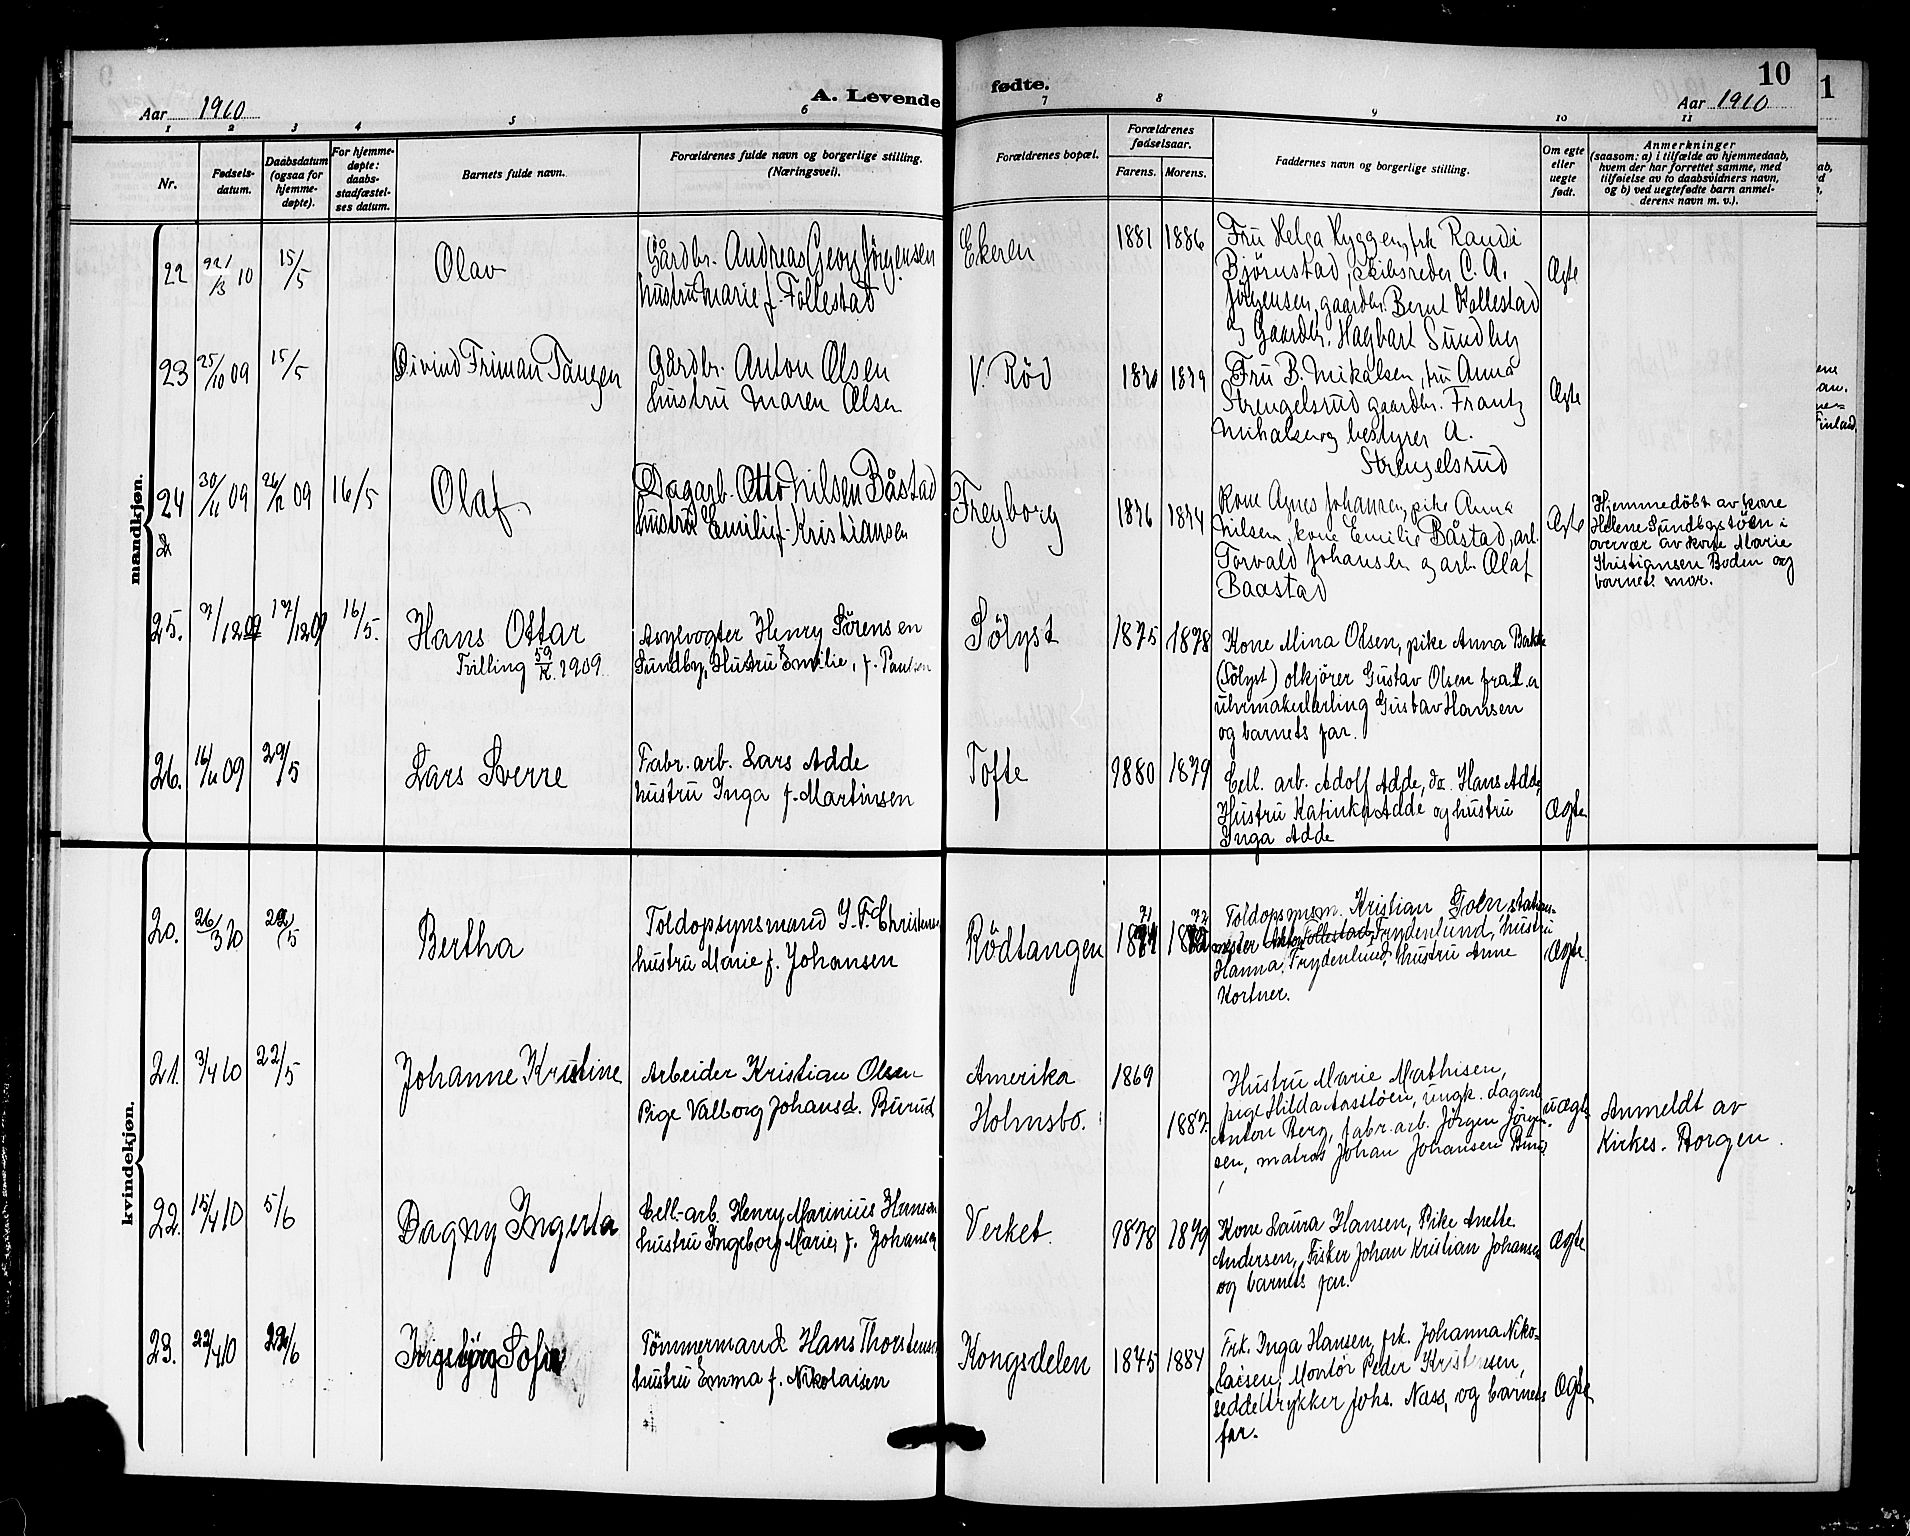 Aar 1910
A. Levende fødte.
10
Aar 1910
1 2 3 4 5 6 7 8 9 10 11
Nr.
Fødsels-
datum.
Daabsdatum
(ogsaa for
hjemme-
døpte).
For hjemme-
døpte:
daabs-
stadfæstel-
ses datum.
Barnets fulde navn.
Forældrenes fulde navn og borgerlige stilling.
(Næringsvei).
Forældrenes bopæl.
Forældrenes
fødselsaar.
Farens. Morens.
Faddernes navn og borgerlige stilling.
Om egte
eller
uegte
født.
Anmerkninger
(saasom: a) i tilfælde av hjemmedaab,
hvem der har forrettet samme, med
tilføielse av to daabsvidners navn,
og b) ved uegtefødte barn anmel-
derens navn m. v.).
mandkjøn.
22 22/3 10 15/5
Olav
Gårdbr. Andreas Georg Jörgensen
hustru Marie f. Follestad
Ekeren
1881 1886
Fru Helga Kyggen, frk Randi
Björnstad, skibsreder C. A.
Jörgensen, gaardbr. Bernt Follestad
og Gaardbr. Hagbart Sundby
Ægte
23 25/10 09 15/5
Øivind Friman Tangen
Gårdbr. Anton Olsen
hustru Maren Olsen
V. Röd
Fru B. Mikalsen, fru Anna
Strengelsrud gaardbr. Frantz
Mikalsen og bestyrer A.
Strengelsrud
Ægte
24 30/11 09 26/12 09 16/5
Olaf
Dagarb. Otto Nilsen Båstad
hustru Emilie f. Kristiansen
Freyborg
1876 1874
Kone Agnes Johansen, pike Anna
Nilsen, kone Emilie Båstad, arb.
Torvald Johansen og arb. Olaf
Baastad
Ægte
Hjemmedöbt av kone
Helene Sundbystöen i
overvær av kone Marie
Kristiansen Boden og
barnets mor.
25. 7/12 09 17/12 09 16/5.
Hans Ottar
Tvilling 59/K. 1909.
Asylvogter Henry Sörensen
Sundby, Hustru Emilie, f. Paulsen
Sölyst
1875 1878
Kone Mina Olsen, pike Anna Bakke
(Sölyst) olkjörer Gustav Olsen
uhrmakerlærling Gustav Hansen
og barnets far.
26. 16/11 09 29/5
Lars Sverre
Fabr. arb. Lars Adde
hustru Inga f. Martinsen
Tofte
1880 1879
Cell. arb. Adolf Adde, do. Hans Adde,
Hustru Katinka Adde og hustru
Inga Adde
Ægte
kvindekjøn.
20. 26/3 10 22/5
Bertha
Toldopsynsmand J. F. Christensen
hustru Marie f. Johansen
Rödtangen
71 72
Toldopsmsm. Kristian Toen, stations-
mester Frydenlund, hustru
Hanna Frydenlund, hustru Anne
Kortner.
Ægte.
21. 3/4 10 22/5
Johanne Kristine
Arbeider Kristian Olsen
Pige Valborg Johansd. Burud
Amerika
Holmsbo.
1869
1887.
Hustru Marie Mathisen,
pige Hilda Aasstöen, ungk. dagarb
Anton Berg, fabr. arb. Jörgen Jörgen-
sen, matros Johan Johansen Burud
uægte
Anmeldt av
Kirkes. Borgen.
22. 15/4 10 5/6
Dagny Ingerta
Cell.-arb. Henry Marinius Hansen
hustru Ingeborg Marie, f. Johansen
Verket.
1878 1879
Kone Laura Hansen, Pike Anette
Andersen, Fisker Johan Kristian Johansen
og barnets far.
Ægte
23. 22/4 10
Tömmermand Hans Thorstensen
hustru Emma f. Nikolaisen
Kongsdelen
1845 1884
Frk. Inga Hansen, frk. Johanna Niko-
laisen, Montör Peder Kristensen,
seddeltrykker Johs. Næss, og barnets
far.
Ægte
1